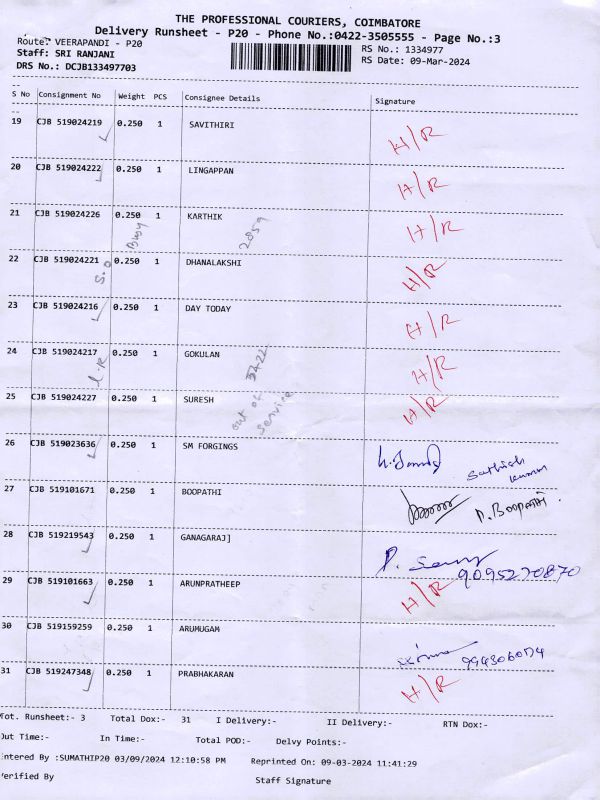 THE PROFESSIONAL COURIERS, COIMBATORE
Delivery Runsheet - P20 - Phone No.:0422-3505555 - Page No.:3
Route: VEERAPANDI - P20
RS No.: 1334977
Staff: SRI RANJANI
RS Date: 09-Mar-2024
DRS No.: DCJB133497703
S No Consignment No Weight PCS Consignee Details Signature
19 CJB 519024219 0.250 1 SAVITHIRI H/R
20 CJB 519024222 0.250 1 LINGAPPAN H/R
21 CJB 519024226 0.250 1 KARTHIK H/R
Busy 2859
22 CJB 519024221 0.250 1 DHANALAKSHI H/R
S.O
23 CJB 519024216 0.250 1 DAY TODAY H/R
24 CJB 519024217 0.250 1 GOKULAN H/R
3422
25 CJB 519024227 0.250 1 SURESH H/R
out of service
26 CJB 519023636 0.250 1 SM FORGINGS
Sathish kumar
27 CJB 519101671 0.250 1 BOOPATHI P. BOOPATHI.
28 CJB 519219543 0.250 1 GANAGARAJ]
9095270870
29 CJB 519101663 0.250 1 ARUNPRATHEEP H/R
30 CJB 519159259 0.250 1 ARUMUGAM
31 CJB 519247348 0.250 1 PRABHAKARAN H/R
Tot. Runsheet:- 3 Total Dox:- 31 I Delivery:- II Delivery:- RTN Dox:-
Out Time:- In Time:- Total POD:- Delvy Points:-
Entered By :SUMATHIP20 03/09/2024 12:10:58 PM Reprinted On: 09-03-2024 11:41:29
Verified By Staff Signature